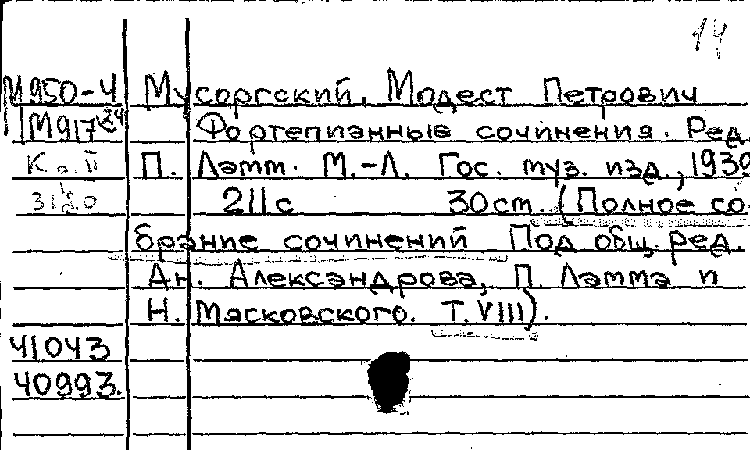 14
М950-4 Мусоргский, Модест Петрович
М917 Фортепианные сочинения. Ред.
П. Ламм. М.-Л. Гос. муз. изд., 1939
211с 30см. (Полное со-
брание сочинений Под общ. ред.
Ан. Александрова, П. Ламма и
Н. Мясковского. Т. VIII).
41043
40993.